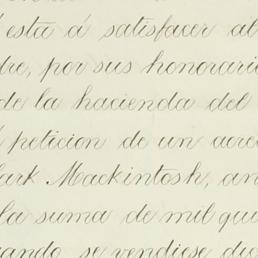 esta á satisfacer al
dre, por sus honorari
de la hacienda del
peticion de un acre
lark Mackintosh, an
la suma de mil qui
uando se vendiese du